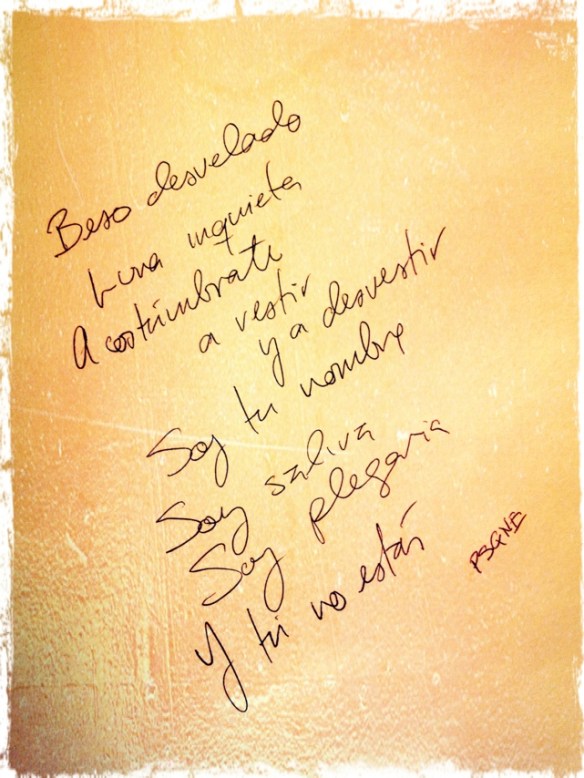 Beso desvelado
Luna inquieta
Acostúmbrate
a vestir
y a desvestir
Soy tu nombre
Soy saliva
Soy plegaria
Y tú no estás
PSGNE